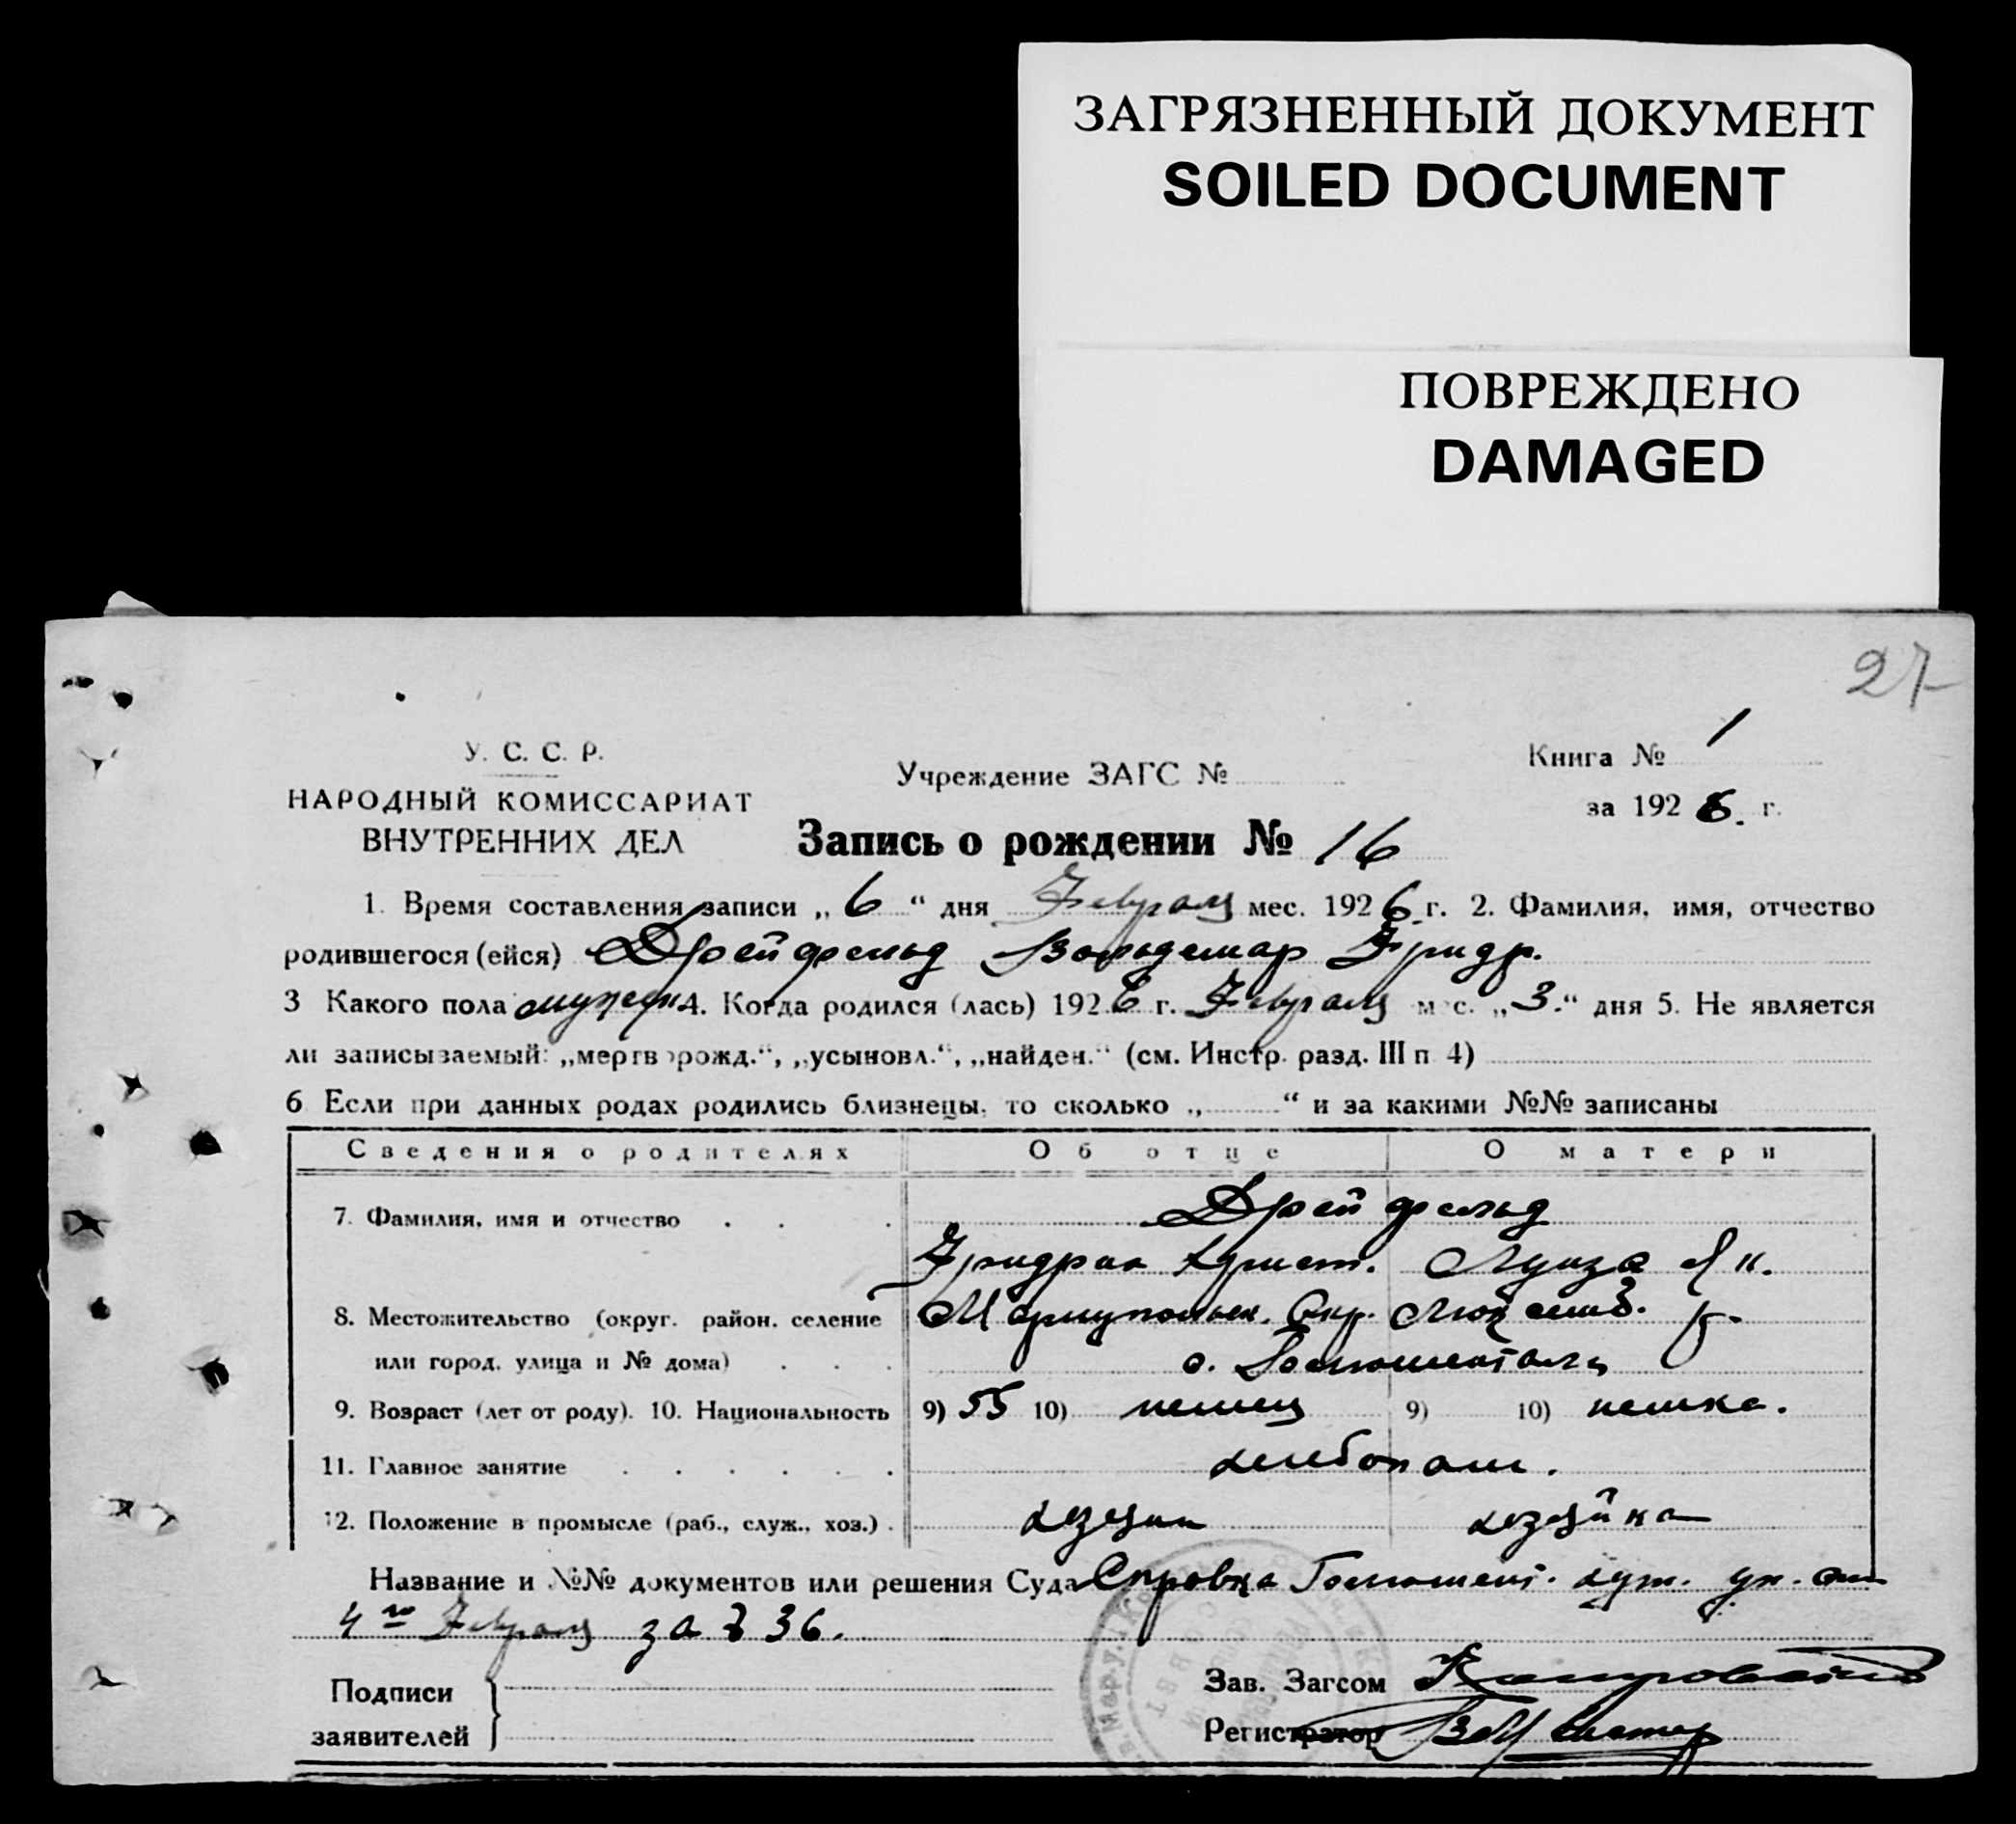 ЗАГРЯЗНЕННЫЙ ДОКУМЕНТ
SOILED DOCUMENT
ПОВРЕЖДЕНО
DAMAGED
27
У. С. С. Р.
НАРОДНЫЙ КОМИССАРИАТ
ВНУТРЕННИХ ДЕЛ
Учреждение ЗАГС №
Книга № 1
за 1926. г.
Запись о рождении № 16
1. Время составления записи „ 6 “ дня Февраля мес. 1926 г. 2. Фамилия, имя, отчество
родившегося (ейся) Дрейфельд Вольдемар Фридр.
3 Какого пола мужеск 4. Когда родился (лась) 1926 г. Февраля мес. „3.“ дня 5. Не является
ли записызаемый: „мертворожд.“, „усыновл.“, „найден.“ (см. Инстр. разд. III п 4)
6 Если при данных родах родились близнецы, то сколько „ “ и за какими №№ записаны
Сведения о родителях Об отце О матери
7. Фамилия, имя и отчество Дрейфельд
Фридрих Христ. Луиза Як.
8. Местожительство (округ. район. селение Мариупольск. Окр. Люксемб. р.
или город, улица и № дома)
9. Возраст (лет от роду). 10. Национальность 9) 55 10) немец 9) 10) немка.
11. Главное занятие хлебопаш.
12. Положение в промысле (раб., служ., хоз.) хозяин хозяйка
Название и №№ документов или решения Суда Справка хут. уп. от
4го Февраля за № 36.
Подписи
заявителей
Зав. Загсом
Регистратор